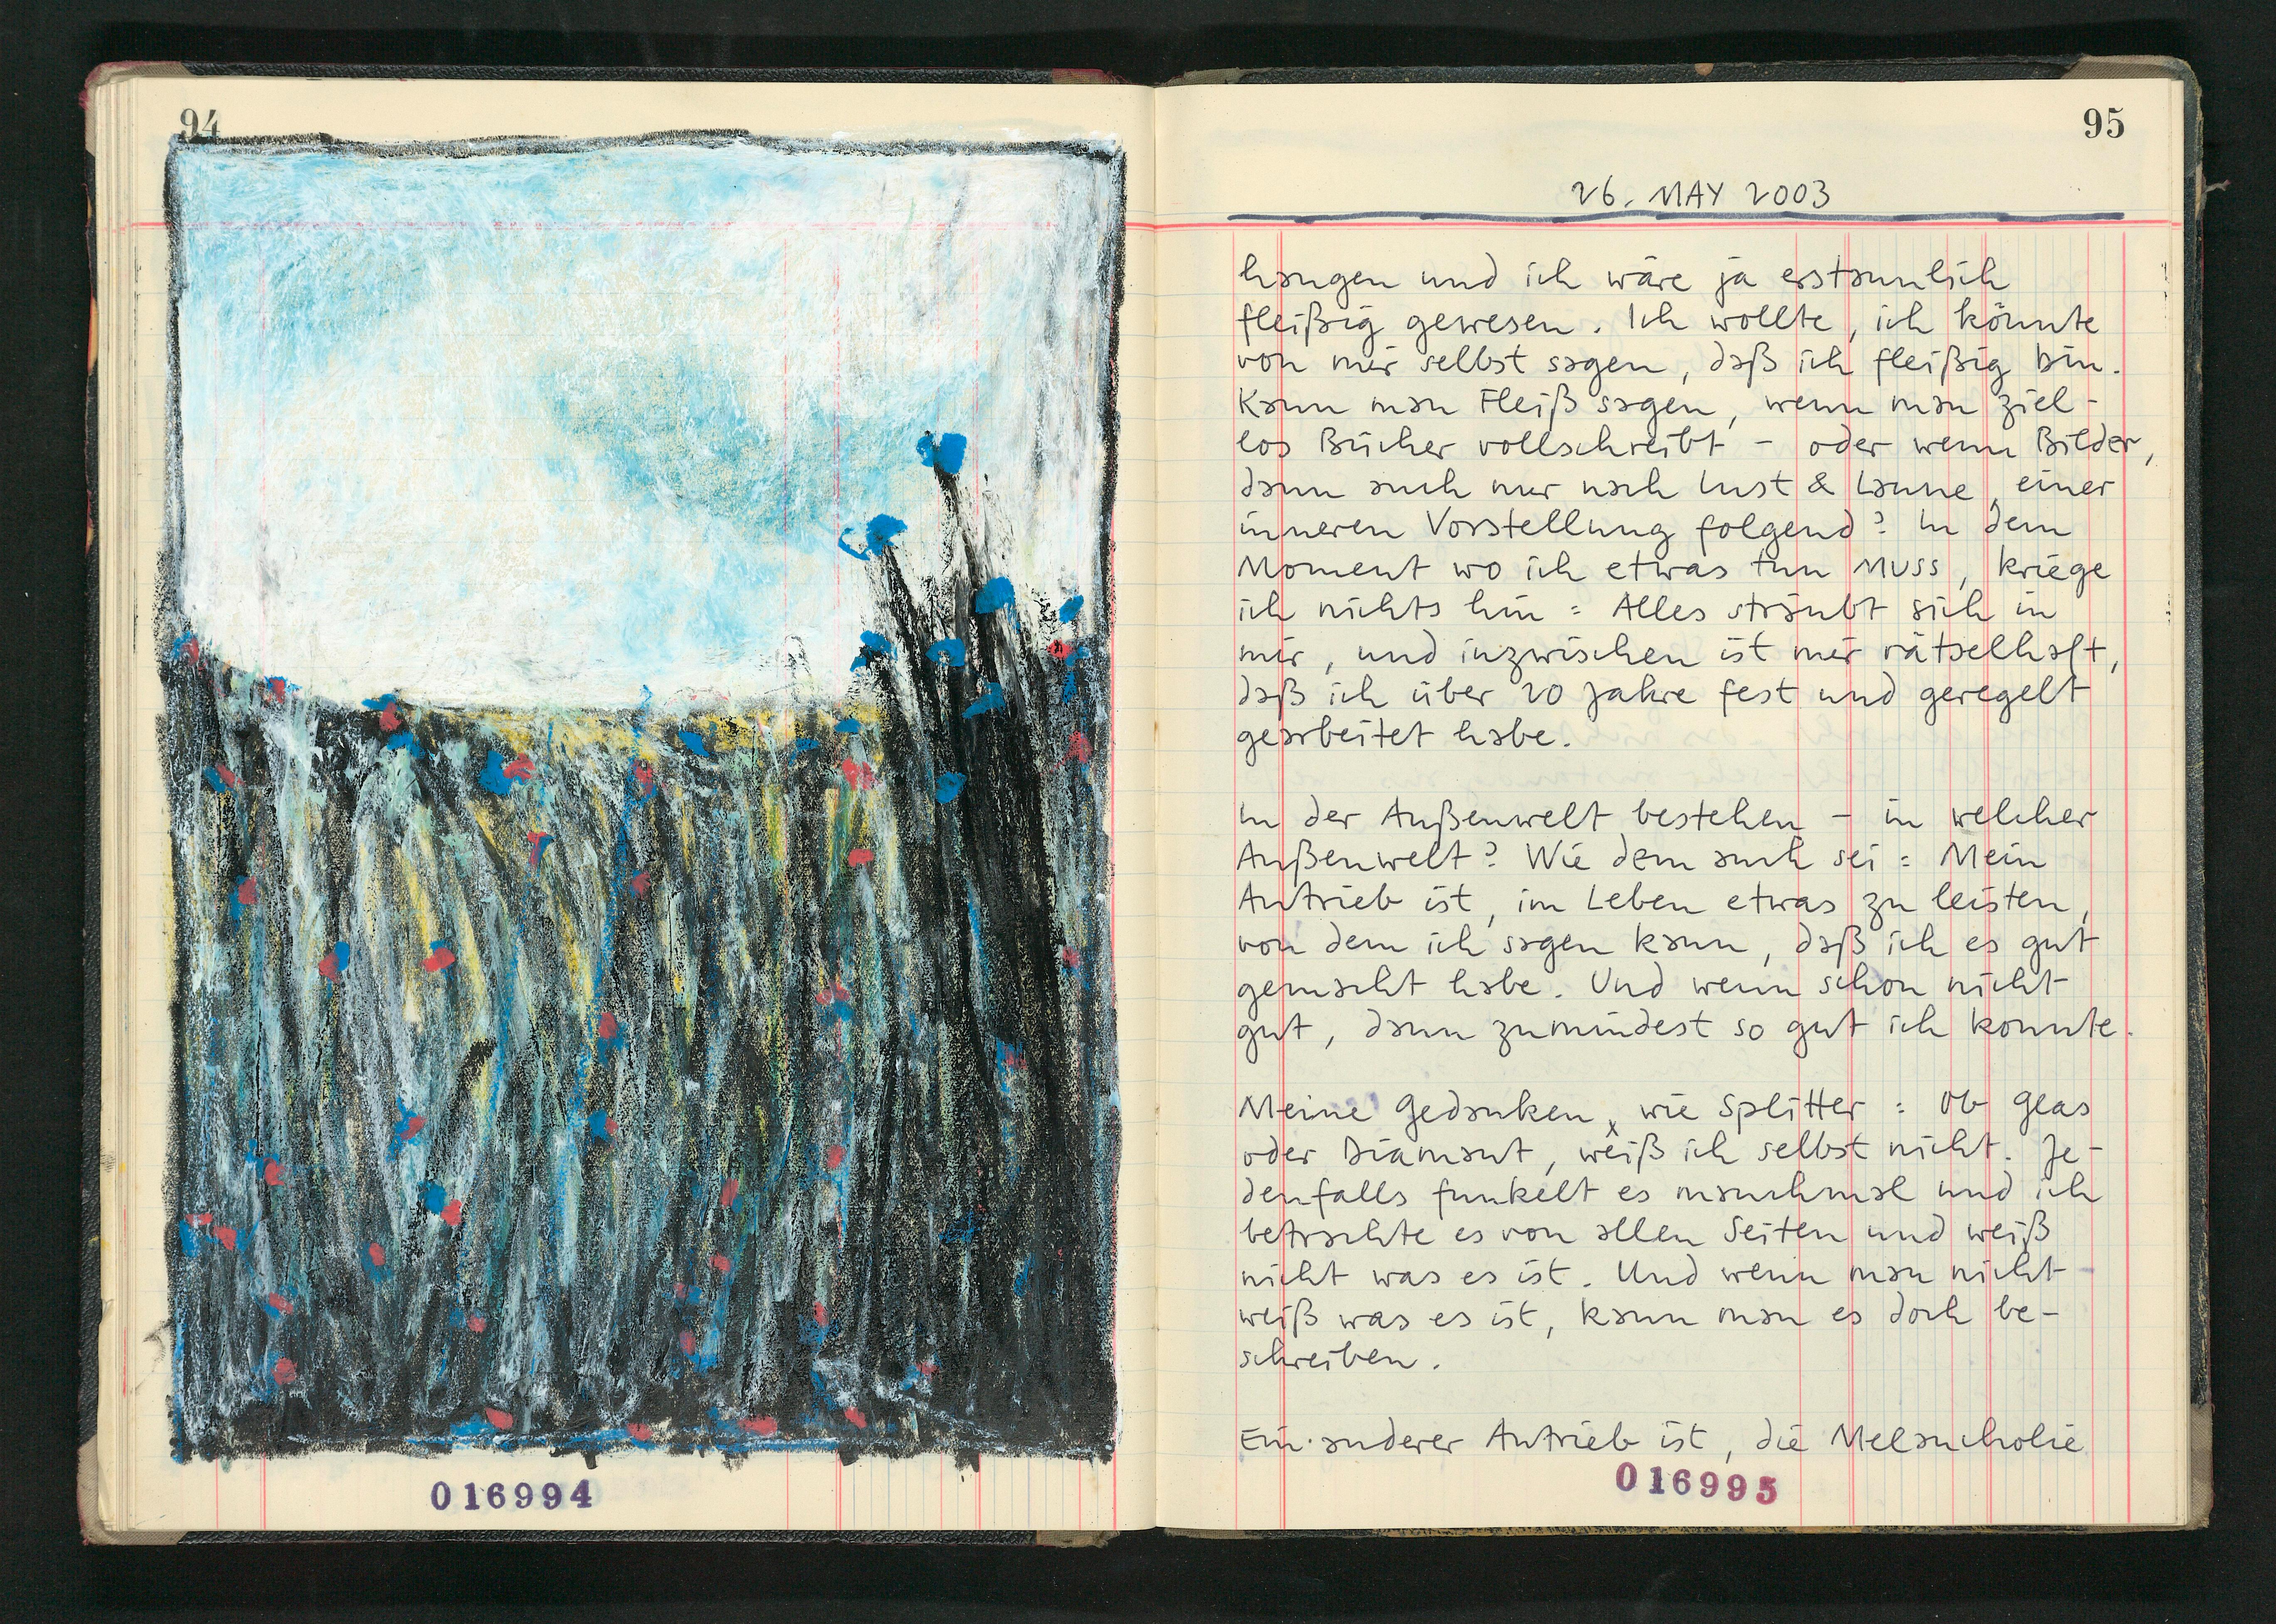 94
016994
95
26. MAY 2003
hangen und ich wäre ja erstaunlich
fleißig gewesen. Ich wollte, ich könnte
von mir selbst sagen, daß ich fleißig bin.
Kann man Fleiß sagen, wenn man ziel-
los Bücher vollschreibt - oder wenn Bilder,
dann auch nur nach Lust & Laune, einer
inneren Vorstellung folgend? In dem
Moment wo ich etwas tun MUSS, kriege
ich nichts hin : Alles sträubt sich in
mir, und inzwischen ist mir rätselhaft,
daß ich über 20 Jahre fest und geregelt
gearbeitet habe.
In der Außenwelt bestehen - in welcher
Außenwelt? Wie dem auch sei : Mein
Antrieb ist, im Leben etwas zu leisten,
von dem ich sagen kann, daß ich es gut
gemacht habe. Und wenn schon nicht
gut, dann zumindest so gut ich konnte.
Meine Gedanken, wie Splitter : Ob Glas
oder Diamant, weiß ich selbst nicht. Je-
denfalls funkelt es manchmal und ich
betrachte es von allen Seiten und weiß
nicht was es ist. Und wenn man nicht
weiß was es ist, kann man es doch be-
schreiben.
Ein anderer Antrieb ist, die Melancholie
016995